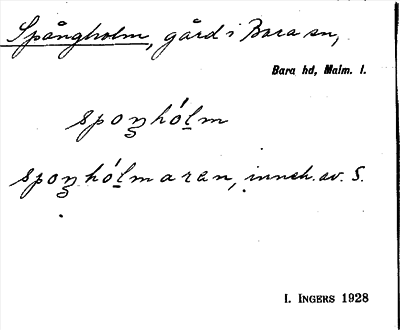 Spångholm, gård i Bara sn,
Bara hd, Malm. l.
spoŋhólm
spoŋhólmaran, inneh. av S.
I. INGERS 1928